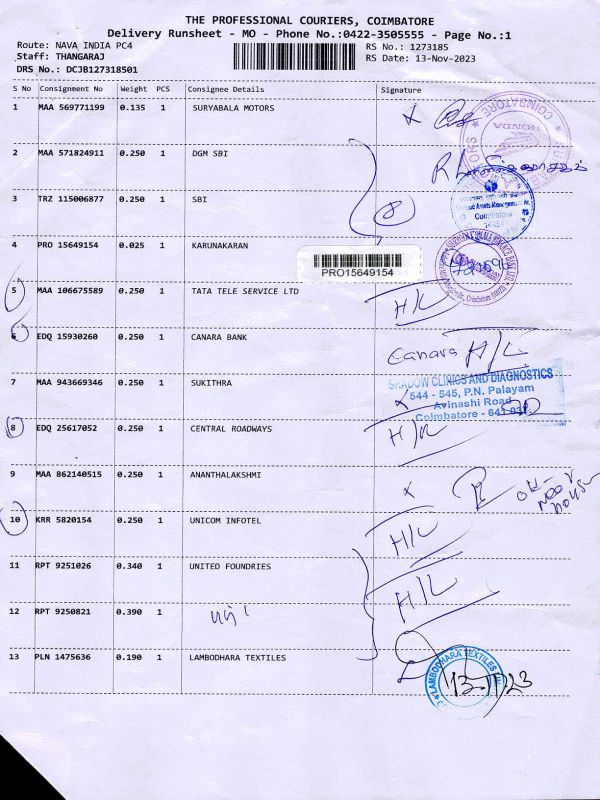 THE PROFESSIONAL COURIERS, COIMBATORE
Delivery Runsheet - MO - Phone No.:0422-3505555 - Page No.:1
Route: NAVA INDIA PC4 RS No.: 1273185
Staff: THANGARAJ RS Date: 13-Nov-2023
DRS No.: DCJB127318501
S No Consignment No Weight PCS Consignee Details Signature
1 MAA 569771199 0.135 1 SURYABALA MOTORS
COIMBATORE
HONDA
2 MAA 571824911 0.250 1 DGM SBI
3 TRZ 115006877 0.250 1 SBI
Coimbatore
4 PRO 15649154 0.025 1 KARUNAKARAN
PRO15649154
5 MAA 106675589 0.250 1 TATA TELE SERVICE LTD H/L
6 EDQ 15930260 0.250 1 CANARA BANK Canara H/L
7 MAA 943669346 0.250 1 SUKITHRA
SHADOW CLINICS AND DIAGNOSTICS
544 - 545, P.N. Palayam
Avinashi Road
Coimbatore - 641 037
8 EDQ 25617052 0.250 1 CENTRAL ROADWAYS H/L
9 MAA 862140515 0.250 1 ANANTHALAKSHMI
10 KRR 5820154 0.250 1 UNICOM INFOTEL H/L
11 RPT 9251026 0.340 1 UNITED FOUNDRIES H/L
12 RPT 9250821 0.390 1
13 PLN 1475636 0.190 1 LAMBODHARA TEXTILES
LAMBODHARA TEXTILES
13-11-23